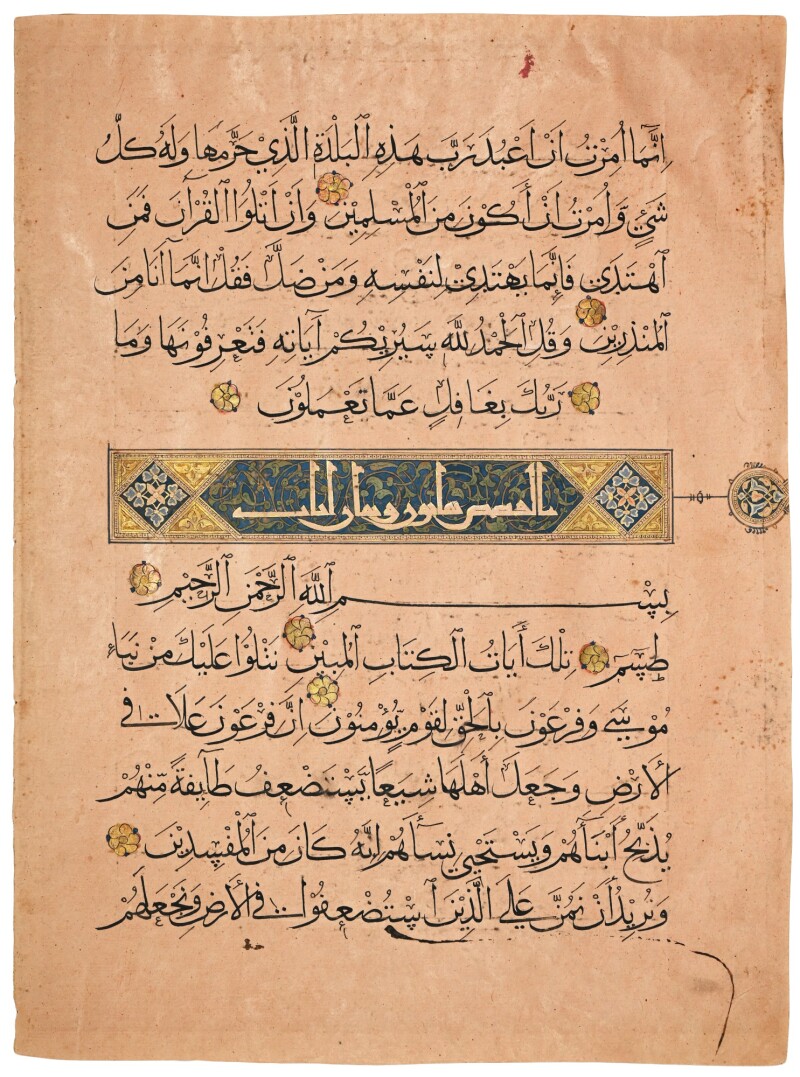 اِنَّمَا اُمِرْتُ اَنْ اَعْبُدَ رَبَّ هَذِهِ الْبَلْدَةِ الَّذِيْ حَرَّمَهَا وَلَهُ كُلُّ
شَيْءٍ وَّاُمِرْتُ اَنْ أَكُوْنَ مِنَ الْمُسْلِمِيْنَ وَاَنْ اَتْلُوَا الْقُرْآنَ فَمَنِ
اهْتَدَى فَاِنَّمَا يَهْتَدِيْ لِنَفْسِهِ وَمَنْ ضَلَّ فَقُلْ اِنَّمَا اَنَا مِنَ
الْمُنْذِرِيْنَ وَقُلِ الْحَمْدُ لِلّٰهِ سَيُرِيْكُمْ آيَاتِهِ فَتَعْرِفُوْنَهَا وَمَا
رَبُّكَ بِغَافِلٍ عَمَّا تَعْمَلُوْنَ
ثمانون وثمان ايات
بِسْمِ اللّٰهِ الرَّحْمٰنِ الرَّحِيْمِ
طٰسٓمٓ تِلْكَ أٰيَاتُ الْكِتَابِ الْمُبِيْنِ نَتْلُوْا عَلَيْكَ مِنْ نَبَاءِ
مُوْسٰى وَفِرْعَوْنَ بِالْحَقِّ لِقَوْمٍ يُّؤْمِنُوْنَ اِنَّ فِرْعَوْنَ عَلَا فِي
الْأَرْضِ وَجَعَلَ أَهْلَهَا شِيَعًا يَّسْتَضْعِفُ طَآيِفَةً مِّنْهُمْ
يُذَبِّحُ أَبْنَأَهُمْ وَيَسْتَحْيِيْ نِسَأَهُمْ اِنَّهُ كَانَ مِنَ الْمُفْسِدِيْنَ
وَنُرِيْدُ أَنْ نَمُنَّ عَلَى الَّذِيْنَ اسْتُضْعِفُوْا فِي الْأَرْضِ وَنَجْعَلَهُمْ